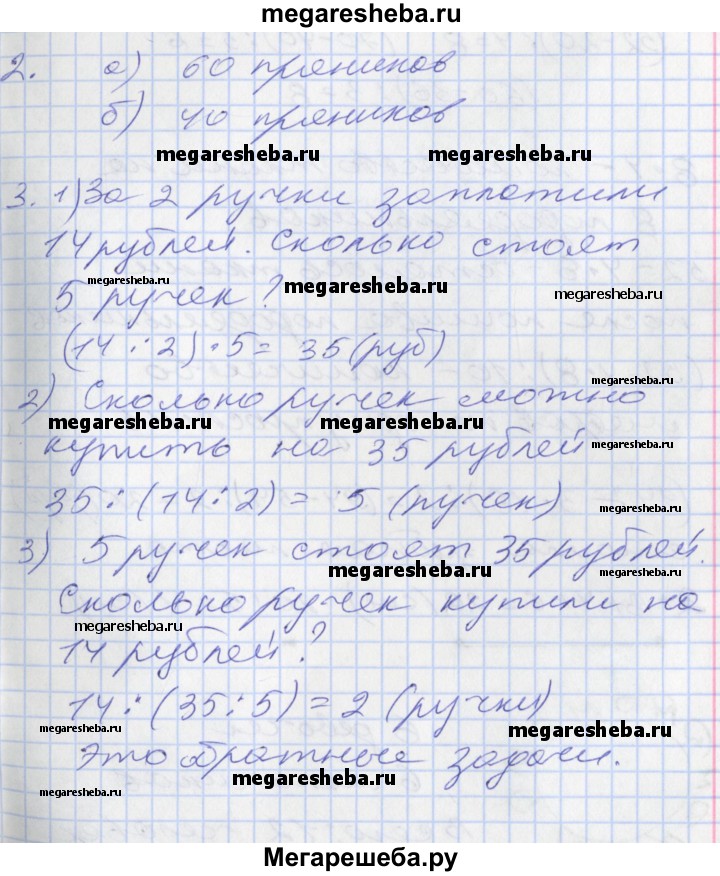 megaresheba.ru
2. а) 60 пряников
б) 40 пряников
megaresheba.ru megaresheba.ru
3. 1) За 2 ручки заплатили
14 рублей. Сколько стоят
megaresheba.ru megaresheba.ru megaresheba.ru
5 ручек?
(14 : 2) · 5 = 35 (руб)
megaresheba.ru
2) Сколько ручек можно
megaresheba.ru megaresheba.ru
купить на 35 рублей
megaresheba.ru
35 : (14 : 2) = 5 (ручек)
megaresheba.ru
3) 5 ручек стоят 35 рублей.
megaresheba.ru megaresheba.ru
Сколько ручек купили на
megaresheba.ru
14 рублей?
14 : (35 : 5) = 2 (ручки)
megaresheba.ru megaresheba.ru
Это обратные задачи.
megaresheba.ru
megaresheba.ru
Мегарешеба.ру